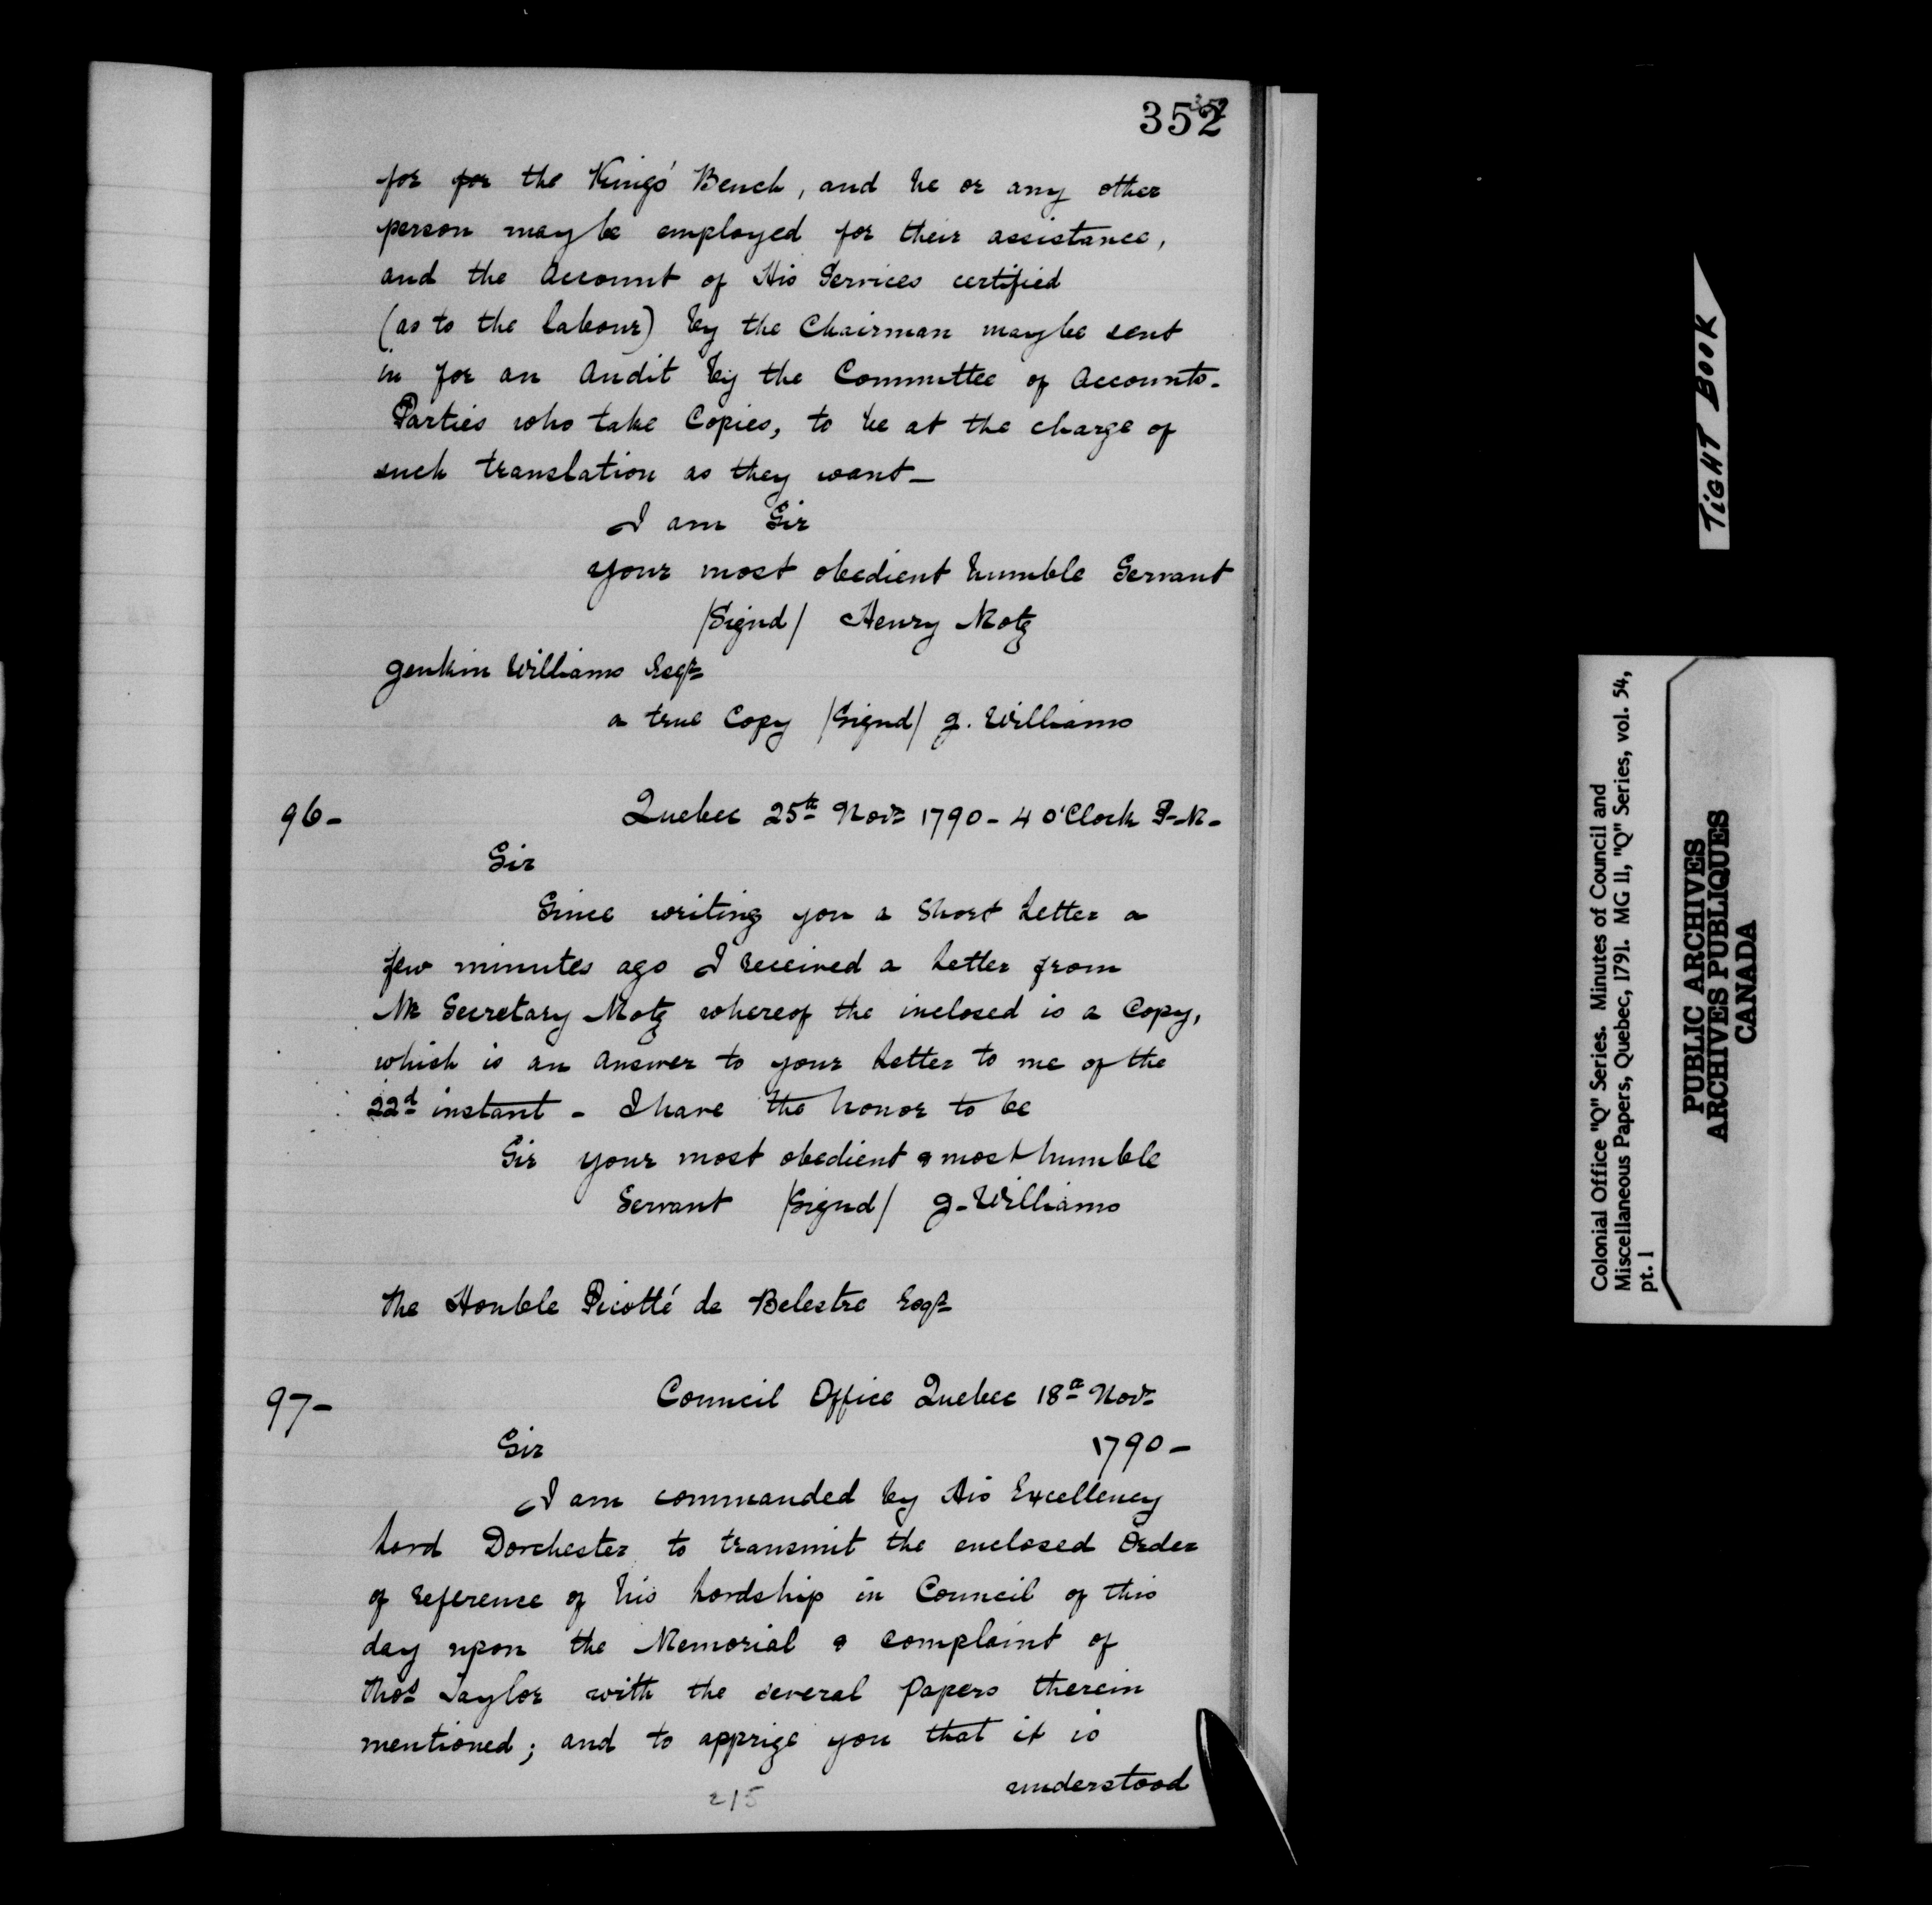 352
for for the King's Bench, and he or any other
person may be employed for their assistance,
and the Account of His Services certified
(as to the labour) by the Chairman may be sent
in for an Audit by the Committee of Accounts.
Parties who take Copies, to be at the charge of
such translation as they want—
I am Sir
your most obedient humble Servant
/Signd/ Henry Motz
Jenkin Williams Esqr
a true Copy /Signd/ J. Williams
96-
Quebec 25th Novr 1790 - 4 O'Clock P-M-
Sir
Since writing you a Short Letter a
few minutes ago I received a Letter from
Mr Secretary Motz whereof the inclosed is a Copy,
which is an Answer to your Letter to me of the
22d instant - I have the honor to be
Sir your most obedient & most humble
Servant /Signd/ J. Williams
The Honble Picotté de Belestre Esqr
97-
Council Office Quebec 18th Novr
1790-
Sir
I am commanded by His Excellency
Lord Dorchester to transmit the enclosed Order
of reference of his Lordship in Council of this
day upon the Memorial & complaint of
Thos Taylor with the several Papers therein
mentioned; and to apprize you that it is
understood
215
TIGHT BOOK
Colonial Office "Q" Series. Minutes of Council and
Miscellaneous Papers, Quebec, 1791. MG 11, "Q" Series, vol. 54,
pt. 1
PUBLIC ARCHIVES
ARCHIVES PUBLIQUES
CANADA